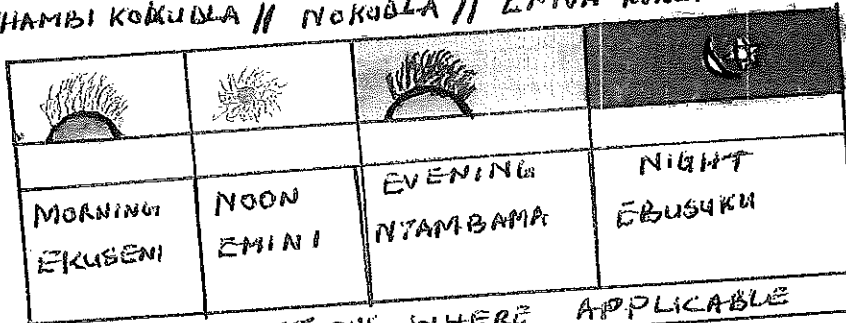 KOKUDLA // NOKUDLA //
MORNING
EKUSENI
NOON
EMINI
EVENING
NTAMBAMA
NIGHT
EBUSUKU
WHERE APPLICABLE